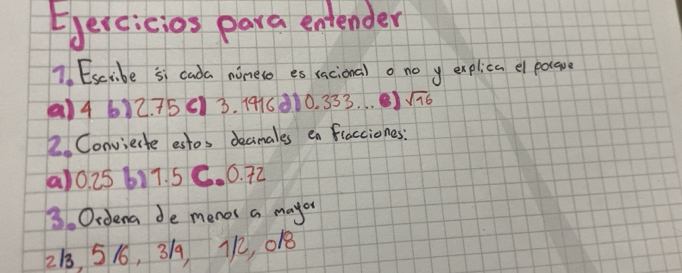 Ejercicios para entender
1. Escribe si cada número es racional o no y explica el porque
a) 4 b) 2.75 c) 3.1416 d) 0.333... e) √16
2. Convierte estos decimales en fracciones:
a) 0.25 b) 1.5 C. 0.72
3. Ordena de menor a mayor
2/3, 5/6, 3/9, 1/2, 0/8